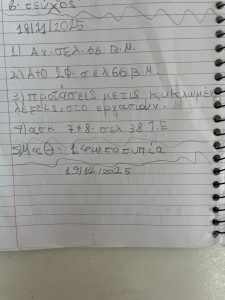 β. τεύχος
18/11/2025
1) Αν. σελ. 66 β.Μ.
2) Από 2φ. σελ 66 β.Μ.
3) Προτάσεις με τις κυκλωμένες
λέξεις στο εργασιων.
4) ασκ 7+8. σελ 38 Τ.Ε.
5) Μαθ: 1 φωτοτυπία
19/11/2025